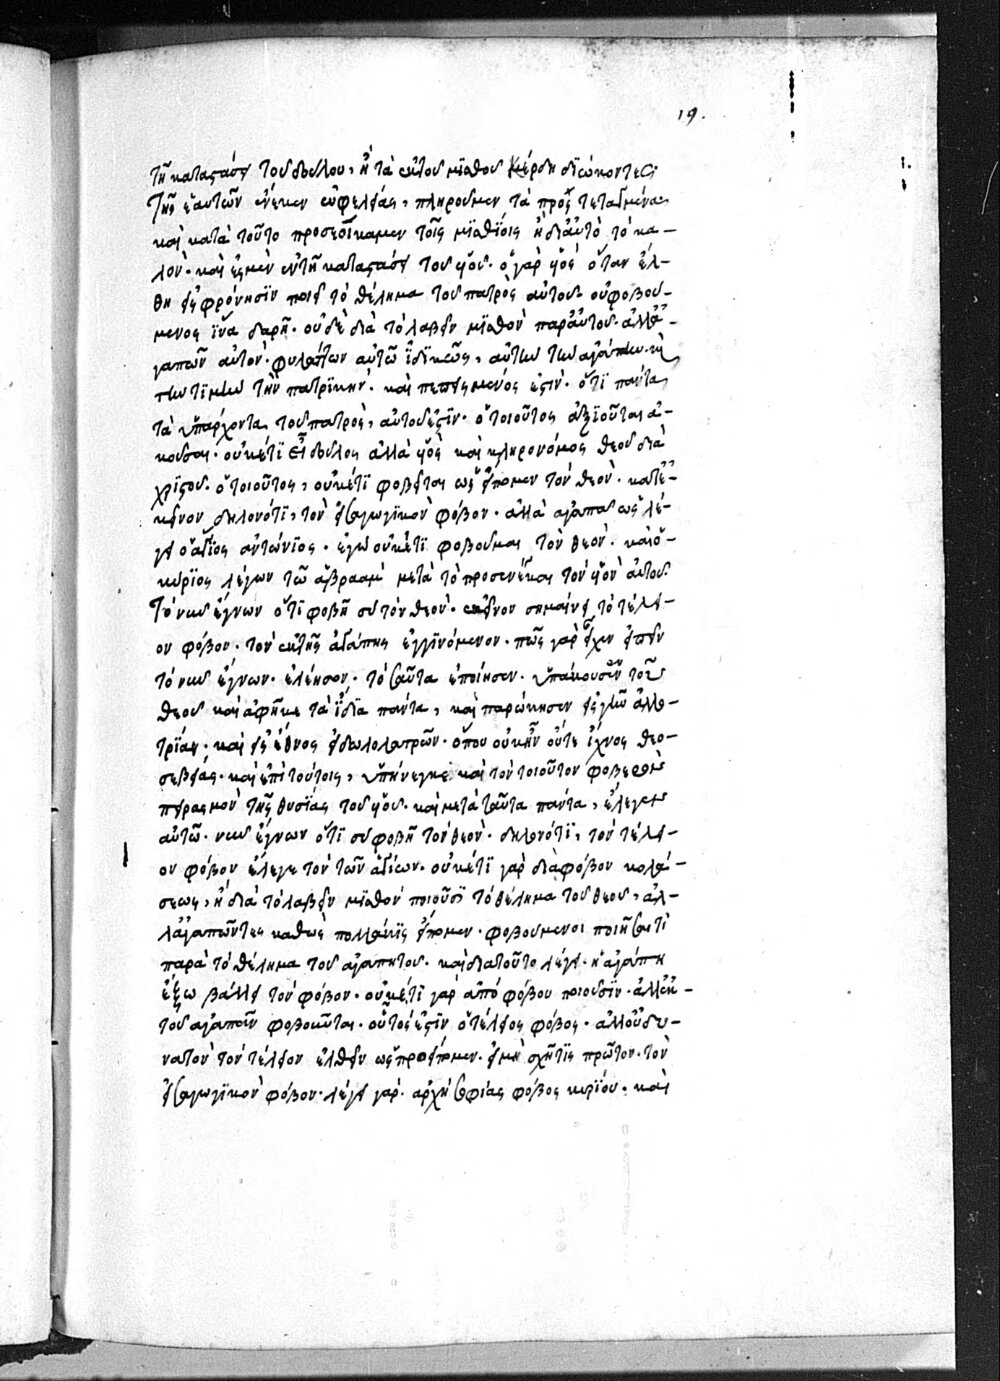 19.
τῆ καταστάσει τοῦ δούλου, ἢ τὰ ἐκ τοῦ μϊσθοῦ κέρδη δϊώκοντες
τῆς ἑαυτῶν ἕνεκεν ὠφελείας, πληροῦμεν τὰ προστεταγμένα
καὶ κατὰ τοῦτο προσεοίκαμεν τοῖς μϊσθίοις ἢ διαὐτὸ τὸ κα-
λὸν. καὶ ἐσμὲν ἐν τῆ καταστάσει τοῦ υἱοῦ. ὁ γὰρ υἱὸς ὅταν ἔλ-
θη εἰς φρόνησϊν ποιεῖ τὸ θέλημα τοῦ πατρὸς αὐτοῦ. οὐ φοβού-
μενος ἵνα δαρῆ. οὐδὲ διὰ τὸ λαβεῖν μϊσθὸν παρ' αὐτοῦ. ἀλλ' ἀ-
γαπῶν αὐτὸν. φυλάττων αὐτῶ ἰδϊκῶς, αὐτὴν τὴν ἀγάπην. καὶ
τὴν τϊμὴν τὴν πατρϊκὴν. καὶ πεπεισμένος ἐστὶν. ὅτϊ πάντα
τὰ ὑπάρχοντα τοῦ πατρὸς, αὐτοῦ ἐστϊν. ὁ τοιοῦτος ἀξϊοῦται ἀ-
κοῦσαι. οὐκέτϊ εἶ δοῦλος ἀλλὰ υἱὸς καὶ κληρονόμος θεοῦ διὰ
χϊστοῦ. ὁ τοιοῦτος, οὐκέτϊ φοβεῖται ὡς εἴπομεν τὸν θεὸν. κατ' ἐ-
κεῖνον δηλονότϊ, τὸν εἰσαγωγϊκὸν φόβον. ἀλλὰ ἀγαπᾶ ὡς λέ-
γει ὁ ἅγϊος ἀντώνϊος. ἐγὼ οὐκέτϊ φοβοῦμαι τὸν θεὸν. καὶ ὁ
κύρϊος λέγων τῶ ἀβραὰμ μετὰ τὸ προσενέγκαι τὸν υἱὸν αὐτοῦ.
τὸ νῦν ἔγνων ὅτϊ φοβῆ σὺ τὸν θεὸν. ἐκεῖνον σημαίνει τὸ τέλει-
ον φόβον. τὸν ἐκ τῆς ἀγάπης ἐγγϊνόμενον. πῶς γὰρ εἶχεν εἰπεῖν
τὸ νῦν ἔγνων. ἐλέησον. τὸ ταῦτα ἐποίησεν. ὑπακούσεν τοῦ
θεοῦ καὶ ἀφῆκε τὰ ἴδϊα πάντα, καὶ παρώκησεν εἰς γῆν ἀλλο-
τρίαν. καὶ εἰς ἔθνος εἰδωλολατρῶν. ὅπου οὐκ ἦν οὔτε ἴχνος θεο-
σεβείας. καὶ ἐπὶ τούτοις, ὑπήνεγκε καὶ τὸν τοιοῦτον φοβερὸν
πειρασμὸν τῆς θυσϊας τοῦ υἱοῦ. καὶ μετὰ ταῦτα πάντα, ἔλεγεν
αὐτῶ. νῦν ἔγνων ὅτϊ σὺ φοβῆ τὸν θεὸν. δηλονότϊ, τὸν τέλει-
ον φόβον ἔλεγε τὸν τῶν ἁγίων. οὐκέτϊ γὰρ διὰ φόβον κολά-
σεως, ἢ διὰ τὸ λαβεῖν μϊσθὸν ποιοῦσϊ τὸ θέλημα τοῦ θεοῦ, ἀλ-
λ' ἀγαπῶντες καθὼς πολλάκϊς εἴπομεν. φοβούμενοι ποιῆσαι τὶ
παρὰ τὸ θέλημα τοῦ ἀγαπητοῦ. καὶ διατοῦτο λέγει. ἡ ἀγάπη
ἔξω βάλλει τὸν φόβον. οὐκέτϊ γὰρ ἀπὸ φόβου ποιοῦσϊν. ἀλλ' ἐκ
τοῦ ἀγαπᾶν φοβοῦνται. οὗτος ἐστϊν ὁ τέλειος φόβος. ἀλλ' οὐ δυ-
νατὸν τὸν τέλειον ἐλθεῖν ὡς προείπομεν. εἰ μὴ σχῆ τϊς πρῶτον. τὸν
εἰσαγωγϊκὸν φόβον. λέγει γὰρ. ἀρχὴ σοφίας φόβος κυρίου. καὶ